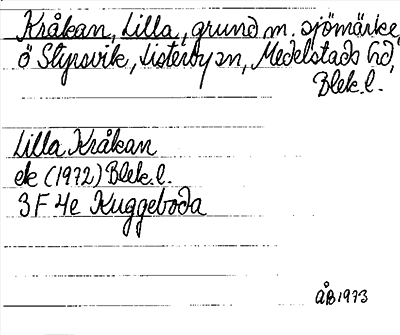 Kråkan, Lilla, grund m. sjömärke,
ö Slyrsvik, Listerby sn, Medelstads hd,
Blek.l.
Lilla Kråkan
ek (1972) Blek.l.
3F 4e Kuggeboda
ÅB 1973